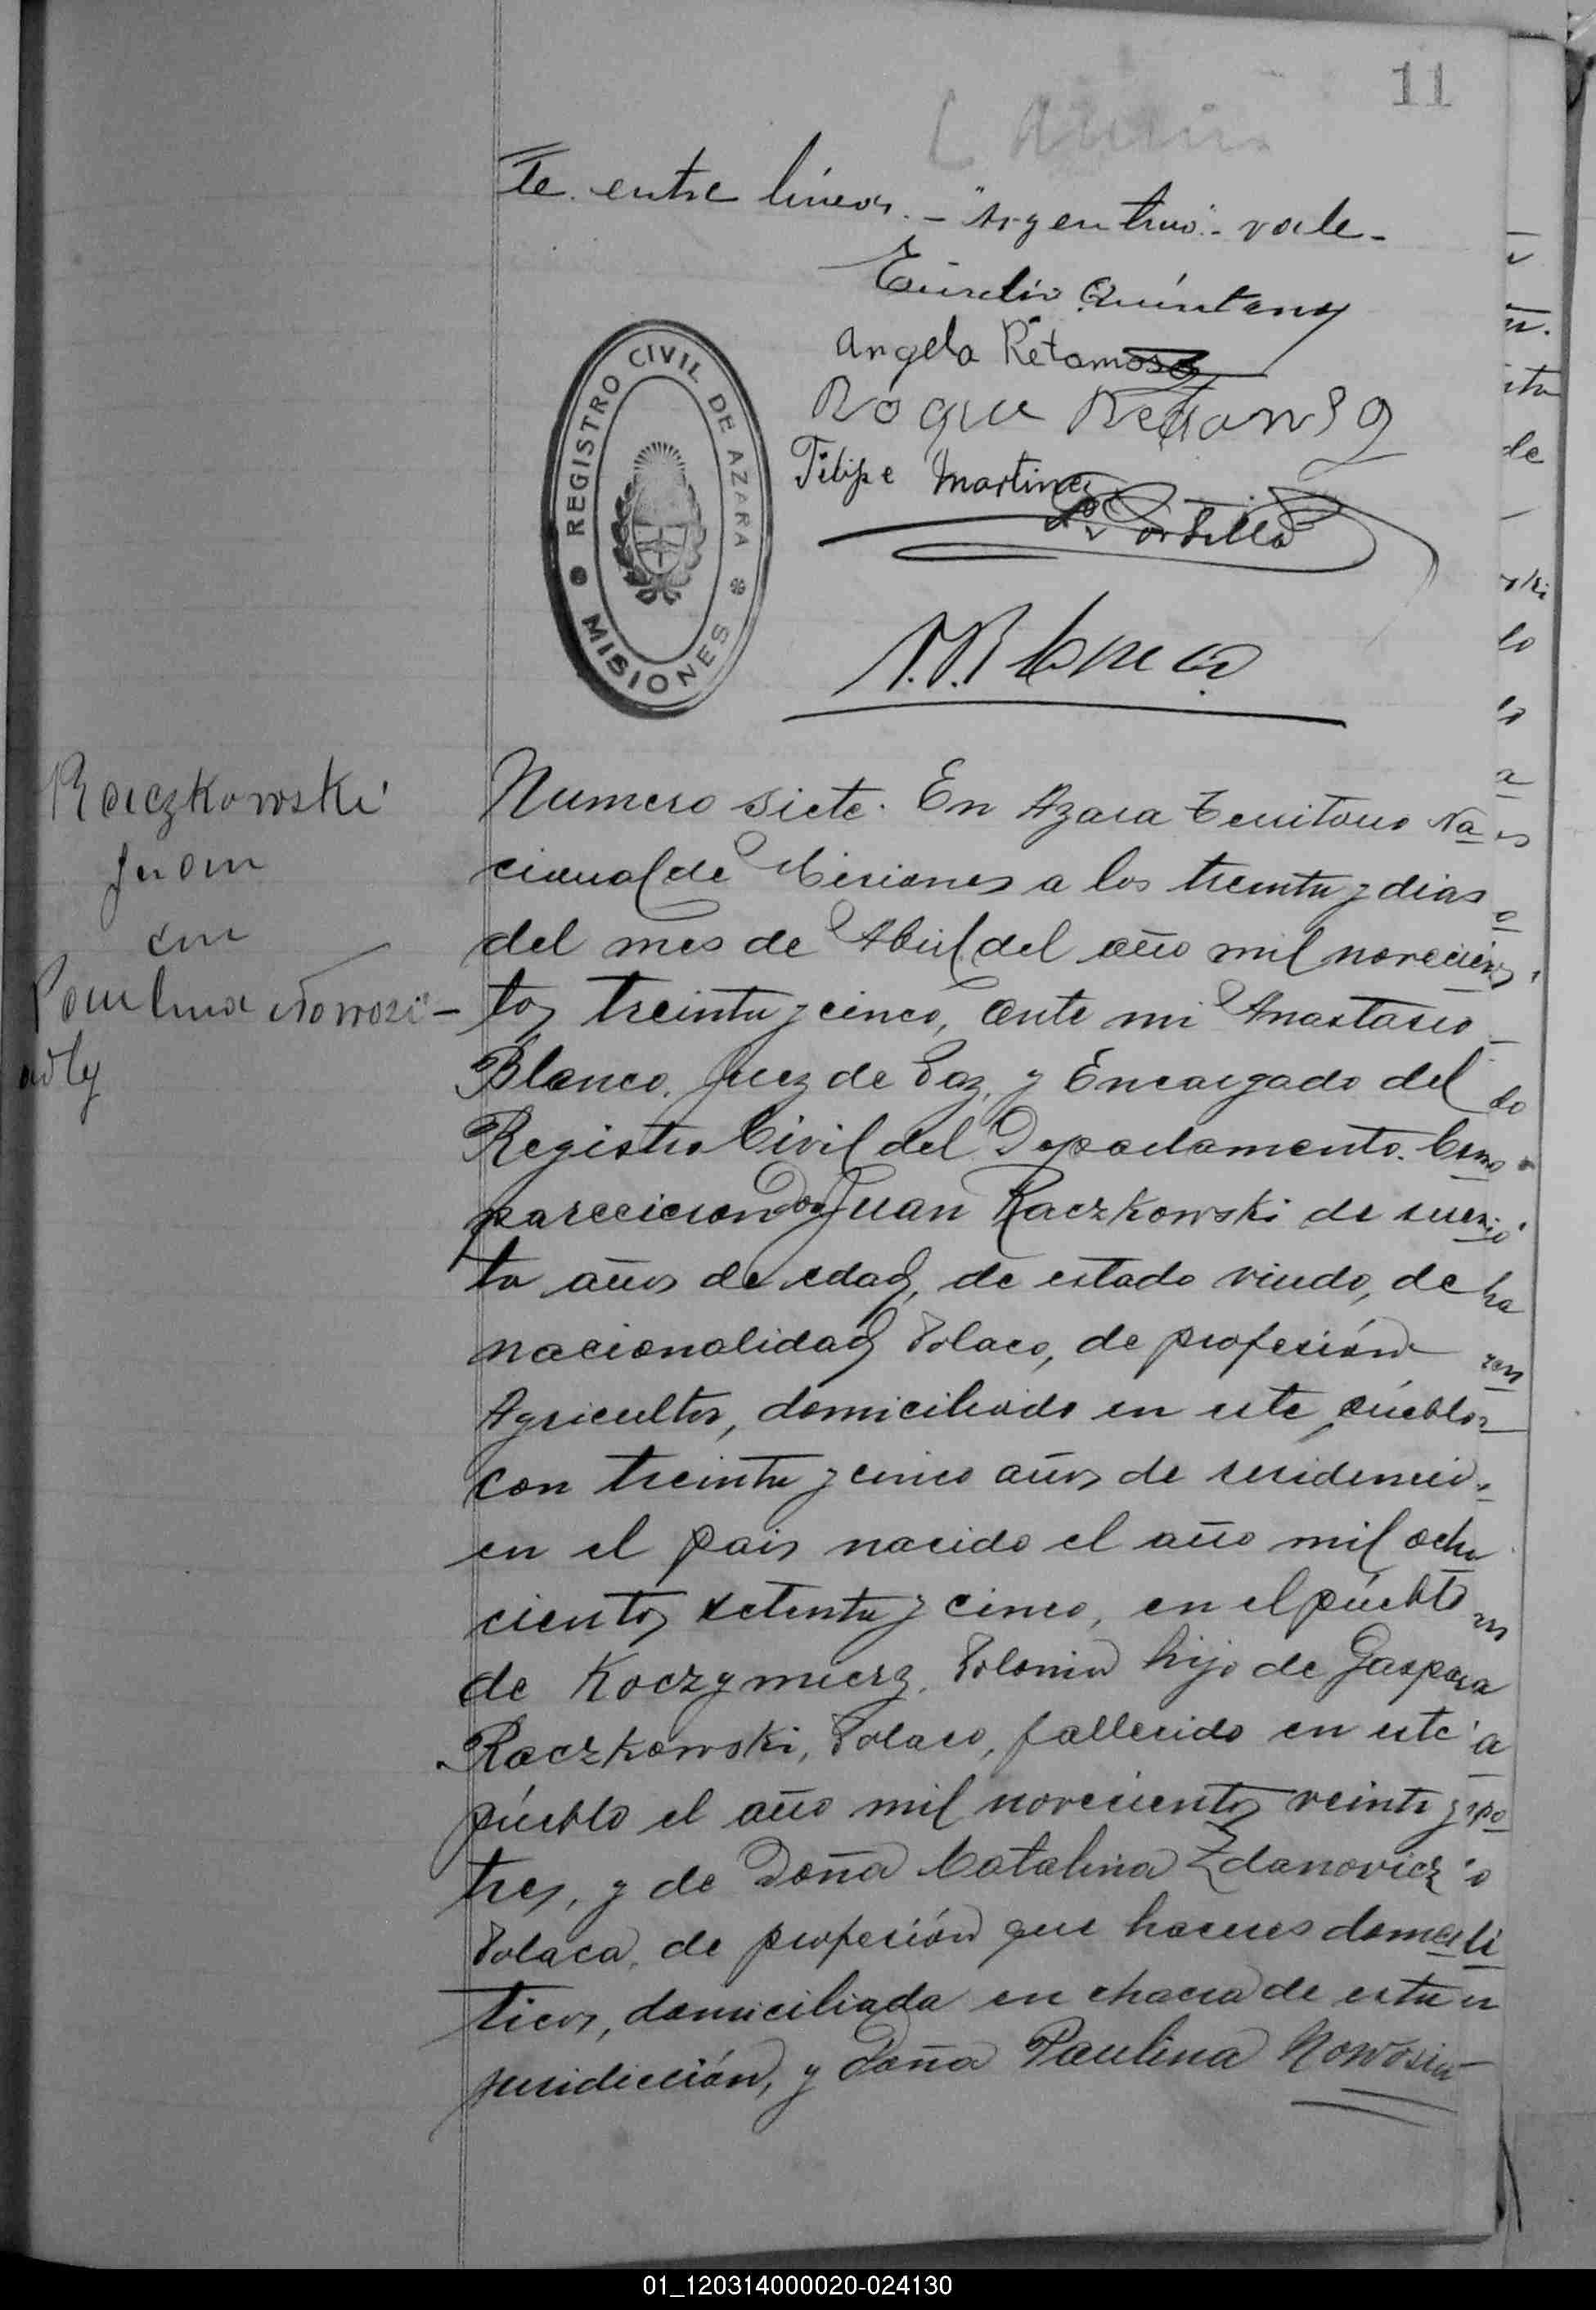 11
Te. entre lineas. - "Argentino". - vale -
Quintana
Angela Retamoso
Roque
Felipe Martinez
Portillo
REGISTRO CIVIL DE AZARA
MISIONES
A. Blanco
Raczkowski
Juan
con
Paulina Nowosi-
adly
Numero siete. En Azara Territorio Na
cional de Misiones a los treinta y dias
del mes de Abril del año mil novecien
tos treinta y cinco, ante mi Anastasio
Blanco, Juez de Paz, y Encargado del
Registro Civil del Departamento. Com
parecieron Don Juan Raczkowski de
ta años de edad, de estado viudo, de
nacionalidad Polaco, de profesión
Agricultor, domiciliado en este pueblo
con treinta y cinco años de residencia
en el pais nacido el año mil ocho
cientos setenta y cinco, en el pueblo
de Koczymierz, Polonia hijo de Gaspar
Raczkowski, Polaco, fallecido en este
pueblo el año mil novecientos veinte y
tres, y de Doña Catalina Zdanovicz
Polaca, de profesión que haceres domes
ticos, domiciliada en chacra de esta
juridicción, y doña Paulina Nowosia
01_120314000020-024130